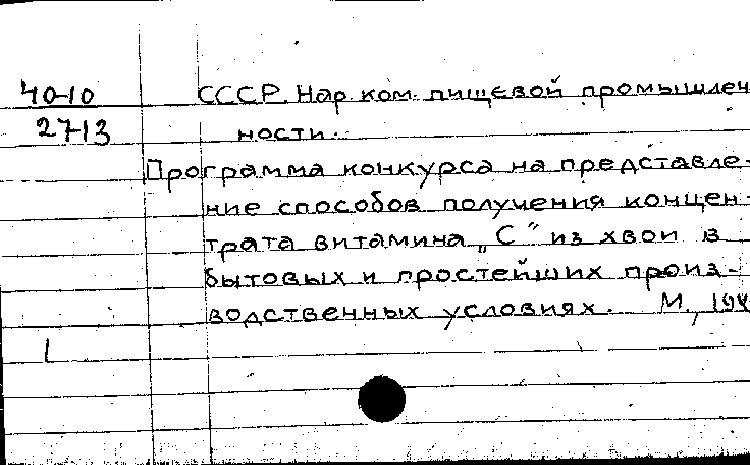 40-10 СССР. Нар. ком. пищевой промышлен
27-13 ности.
Программа конкурса на представле-
ние способов получения концен-
трата витамина „С" из хвои в
бытовых и простейших произ-
водственных условиях. М.,
1